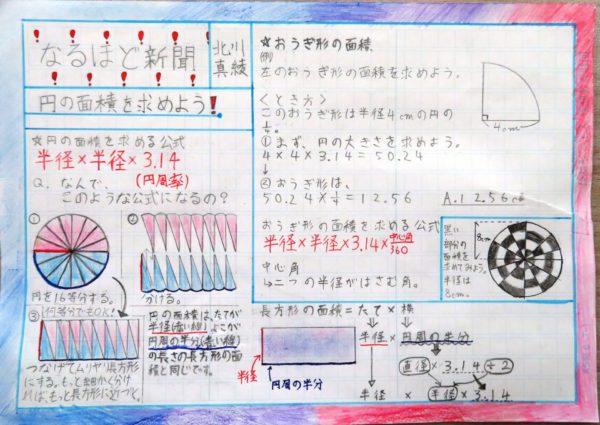 なるほど新聞
北川
真綾
円の面積を求めよう!
☆円の面積を求める公式
半径×半径×3.14
(円周率)
Q. なんで、
このような公式になるの?
①
②
円を16等分する。
何等分でもOK!
分ける。
③
つなげてムリヤリ長方形
にする。もっと細かく分け
れば、もっと長方形に近づく。
円の面積は、たてが
半径(赤い線)、よこが
円周の半分(青い線)
の長さの長方形の面
積と同じです。
☆おうぎ形の面積
(例)
左のおうぎ形の面積を求めよう。
4cm
<とき方>
このおうぎ形は半径4cmの円の
1/4。
①まず、円の大きさを求めよう。
4×4×3.14=50.24
↓
②おうぎ形は、
50.24×1/4=12.56
A.12.56c㎡
おうぎ形の面積を求める公式
半径×半径×3.14×中心角/360
中心角
↳二つの半径がはさむ角。
黒い
部分の
面積を
求めてみよう。
半径は
8cm。
8cm
長方形の面積=たて×横
半径×円周の半分
直径×3.14÷2
半径
円周の半分
半径×半径×3.14